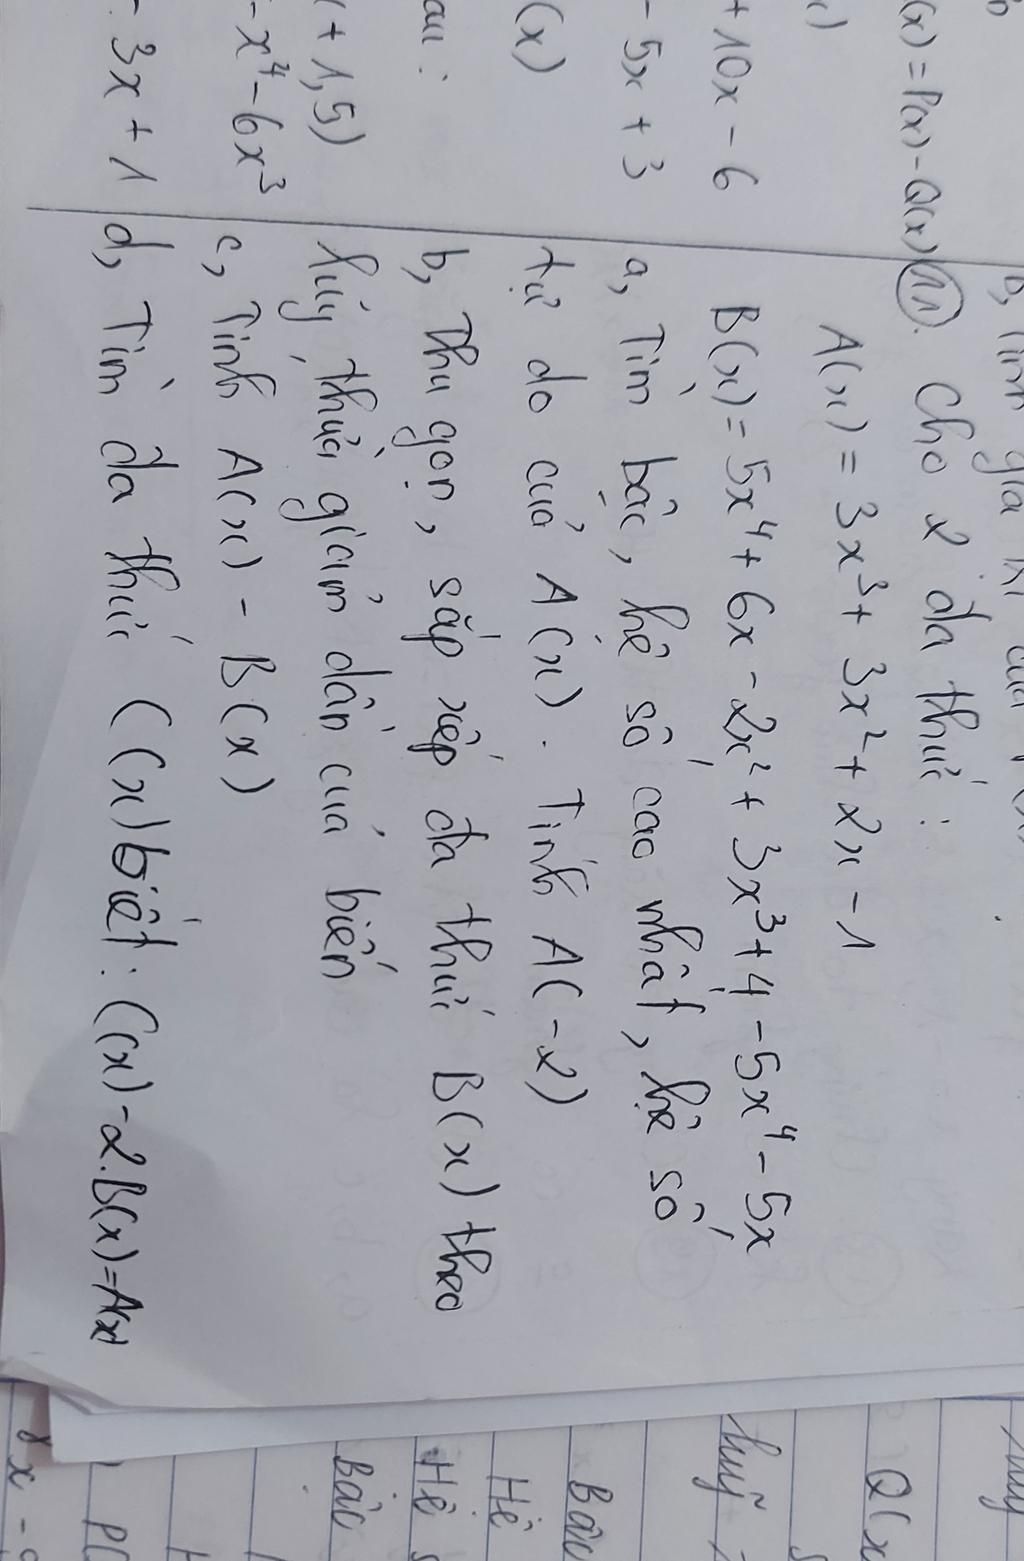 (x) = P(x) - Q(x)
+ 10x - 6
- 5x + 3
(x)
au :
+ 1,5)
- x⁴ - 6x³
- 3x + 1
11. Cho 2 đa thức :
A(x) = 3x³ + 3x² + 2x - 1
B(x) = 5x⁴ + 6x - 2x² + 3x³ + 4 - 5x⁴ - 5x
a, Tìm bậc, hệ số cao nhất, hệ số
tự do của A(x). Tính A(-2)
b, Thu gọn, sắp xếp đa thức B(x) theo
luỹ thừa giảm dần của biến
c, Tính A(x) - B(x)
d, Tìm đa thức C(x) biết : C(x) - 2.B(x) = A(x)
Q(x
Bậc
Hệ
Hệ
Bậc